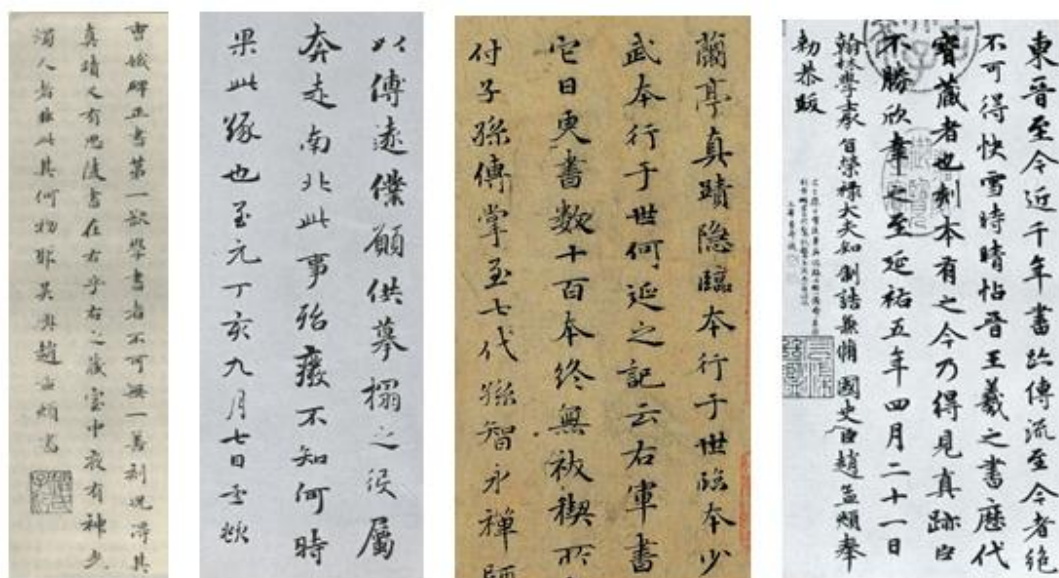 曹娥碑正書第一欲學書者不可無一善刻況得其
真蹟又有思陵書在右乎右之藏室中夜有神光
燭人者非此其何物耶吳興趙孟頫書
以傳遠僕願供摹搨之役屬
奔走南北此事殆廢不知何時
果此緣也至元丁亥九月七日
蘭亭真蹟隱臨本行于世臨本少
武本行于世何延之記云右軍書
它日更書數十百本終無祓禊所
付子孫傳掌至七代孫智永禪師
東晉至今近千年書跡傳流至今者絕
不可得快雪時晴帖晉王羲之書歷代
寶藏者也刻本有之今乃得見真跡臣
不勝欣幸之至延祐五年四月二十一日
翰林學士承旨榮祿大夫知制誥兼脩國史臣趙孟頫奉
勑恭跋